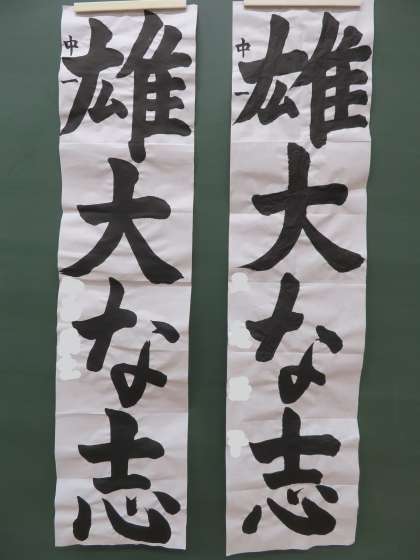 雄大な志
中一
雄大な志
中一